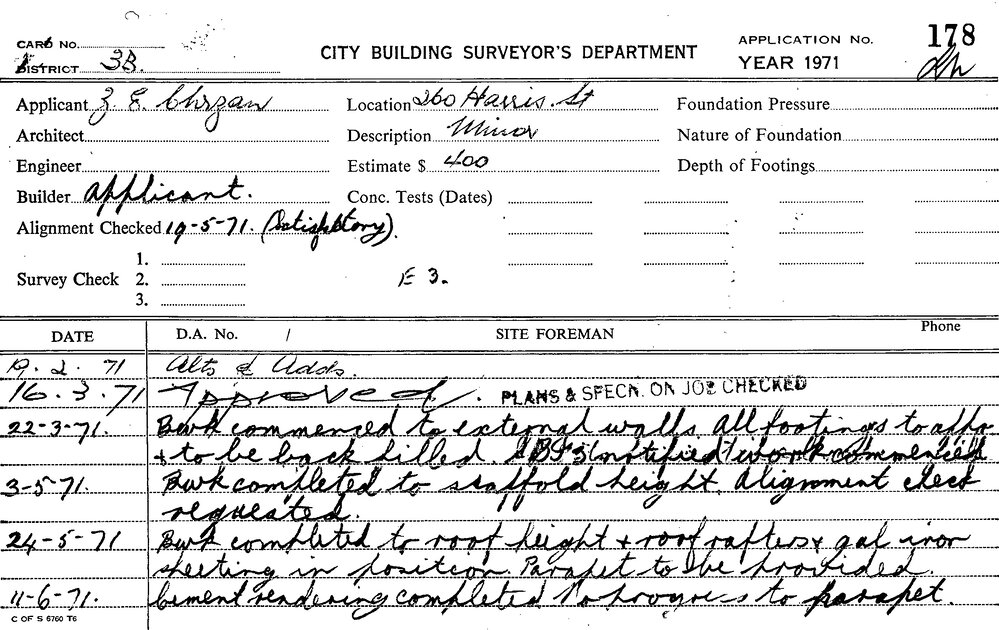 CARD No.
DISTRICT 3B.
CITY BUILDING SURVEYOR'S DEPARTMENT
APPLICATION No. 178
YEAR 1971
Applicant Z. E. Chrzan Location 260 Harris. St Foundation Pressure
Architect Description Minor Nature of Foundation
Engineer Estimate $ 400 Depth of Footings
Builder applicant. Conc. Tests (Dates)
Alignment Checked 19-5-71. (Satisfactory).
1.
Survey Check 2. E 3.
3.
DATE D.A. No. / SITE FOREMAN Phone
19. 2. 71 Alts & Adds.
16. 3. 71 Approved. PLANS & SPECN. ON JOB CHECKED
22-3-71. Bwk commenced to external walls. All footings to
+ to be back filled. notified work commenced
3-5-71. Bwk completed to scaffold height. Alignment check
requested.
24-5-71 Bwk completed to roof height + roof rafters + gal iron
sheeting in position. Parapet to be provided.
11-6-71. Cement rendering completed No progress to parapet.
C OF S 6760 T6